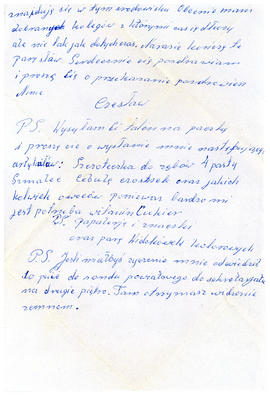 znajdują się w tym środowisku Obecnie mam
dobranych kolegów z którymi nasiedzimy
ale nie tak jak dotychczas. Narazie kończę te
parę słów. Serdecznie cię pozdrawiam
i proszę Cię o przekazanie pozdrowień
Czesław
P.S. Wysyłam Ci talon na paczkę
i proszę cię o wysłanie mnie następujących
artykułów: Szczoteczka do zębów 4 pasty
Smalec cebulę czosnek oraz jakich
kolwiek owoców ponieważ bardzo mi
jest potrzeba witamin Cukier
P.S. papeterji i znaczki
oraz parę Widokówek kolorowych
P.S. Jeśli miałbyś życzenie mnie odwiedzić
to pisz do sądu powiatowego do sekretarjatu
na drugie piętro. Tam otrzymasz widzenie
zemnom.